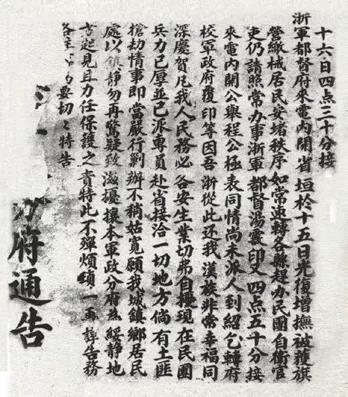 十六日四点三十分接
浙军都督府来電内開省垣於十五日光復增撫被獲旗
營繳械居民安堵秩序如常速轉各縣趕办民團自衛官
吏仍請照常办事浙軍都督湯震印又四点五十分接
來電内開公舉程公極表同情尚未派人到紹乞轉府
校軍政府覆印等因吾浙從此还我漢族非常幸福同
深慶賀凡我人民務必各安生業切弗自擾現在民團
兵力已厚並已派專員赴省接洽一切地方倘有土匪
搶刼情事即當嚴行剿辦不稍姑寬願我城鎮鄉居民
處以鎮静勿再驚疑致滋擾攘本軍政分府為綏静地
方起見且力任保護之責特此不殫煩瑣一再諄告務
各主 要切切特告
府通告